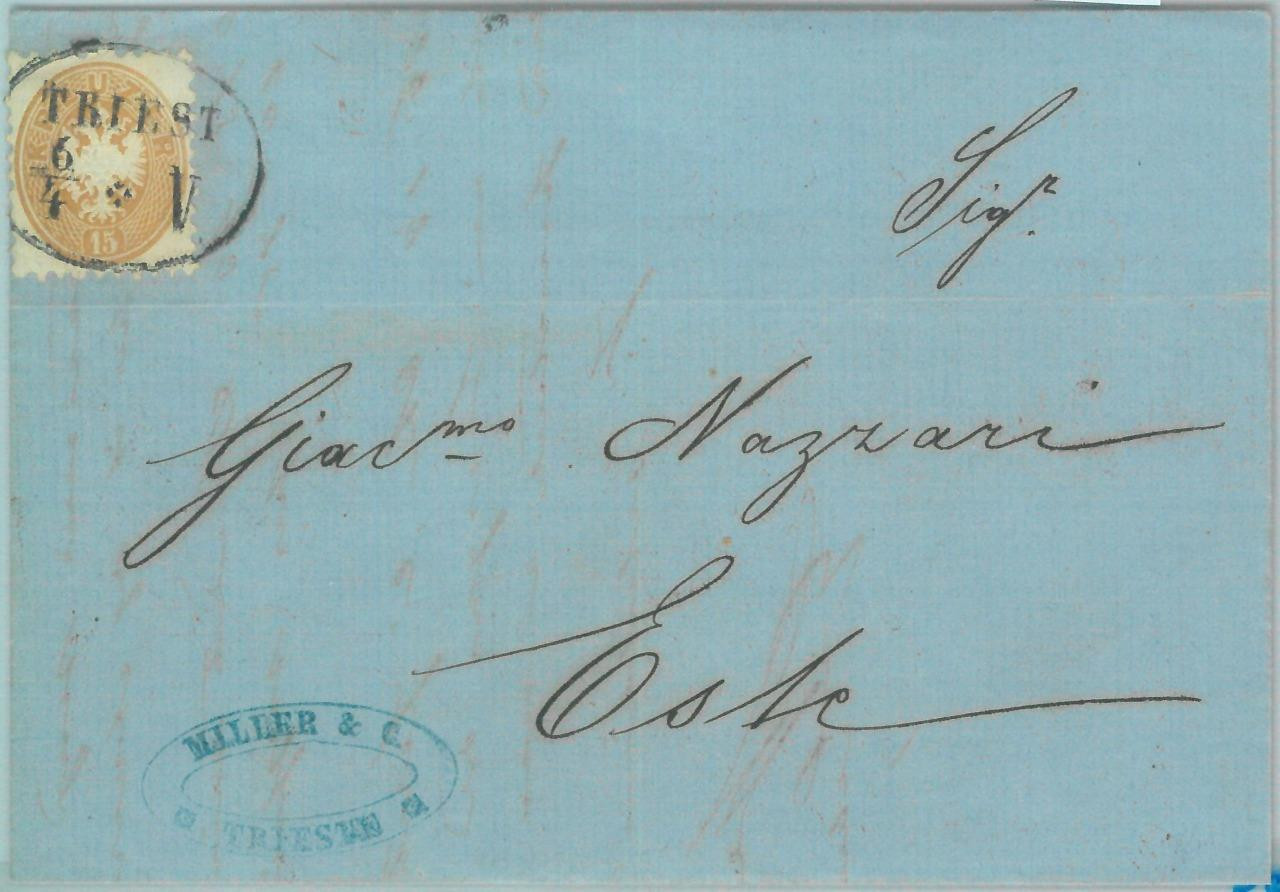 TRIEST
6
4 V
15
Sigr.
Giacmo Nazzari
Este
MILLER & C.
TRIESTE